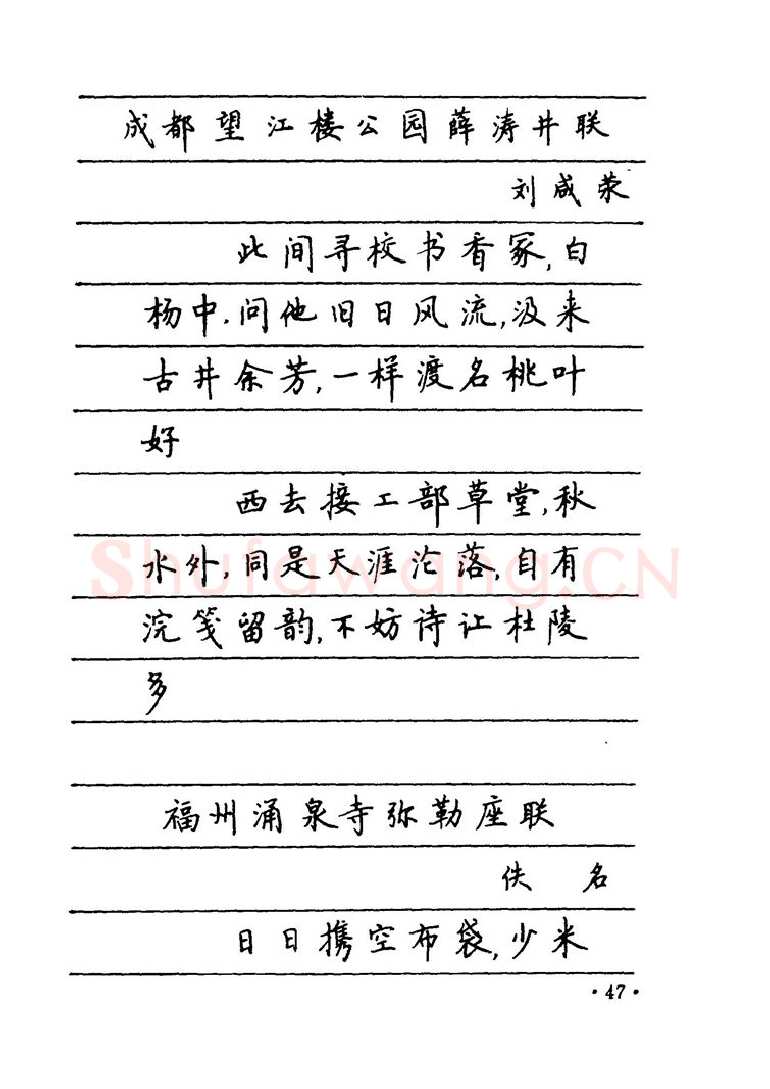 成都望江楼公园薛涛井联
刘咸荥
此间寻校书香冢,白
杨中,问他旧日风流,汲来
古井余芳,一样渡名桃叶
好
西去接工部草堂,秋
水外,同是天涯沦落,自有
浣笺留韵,不妨诗让杜陵
多
福州涌泉寺弥勒座联
佚名
日日携空布袋,少米
·47·
Shufawang.CN